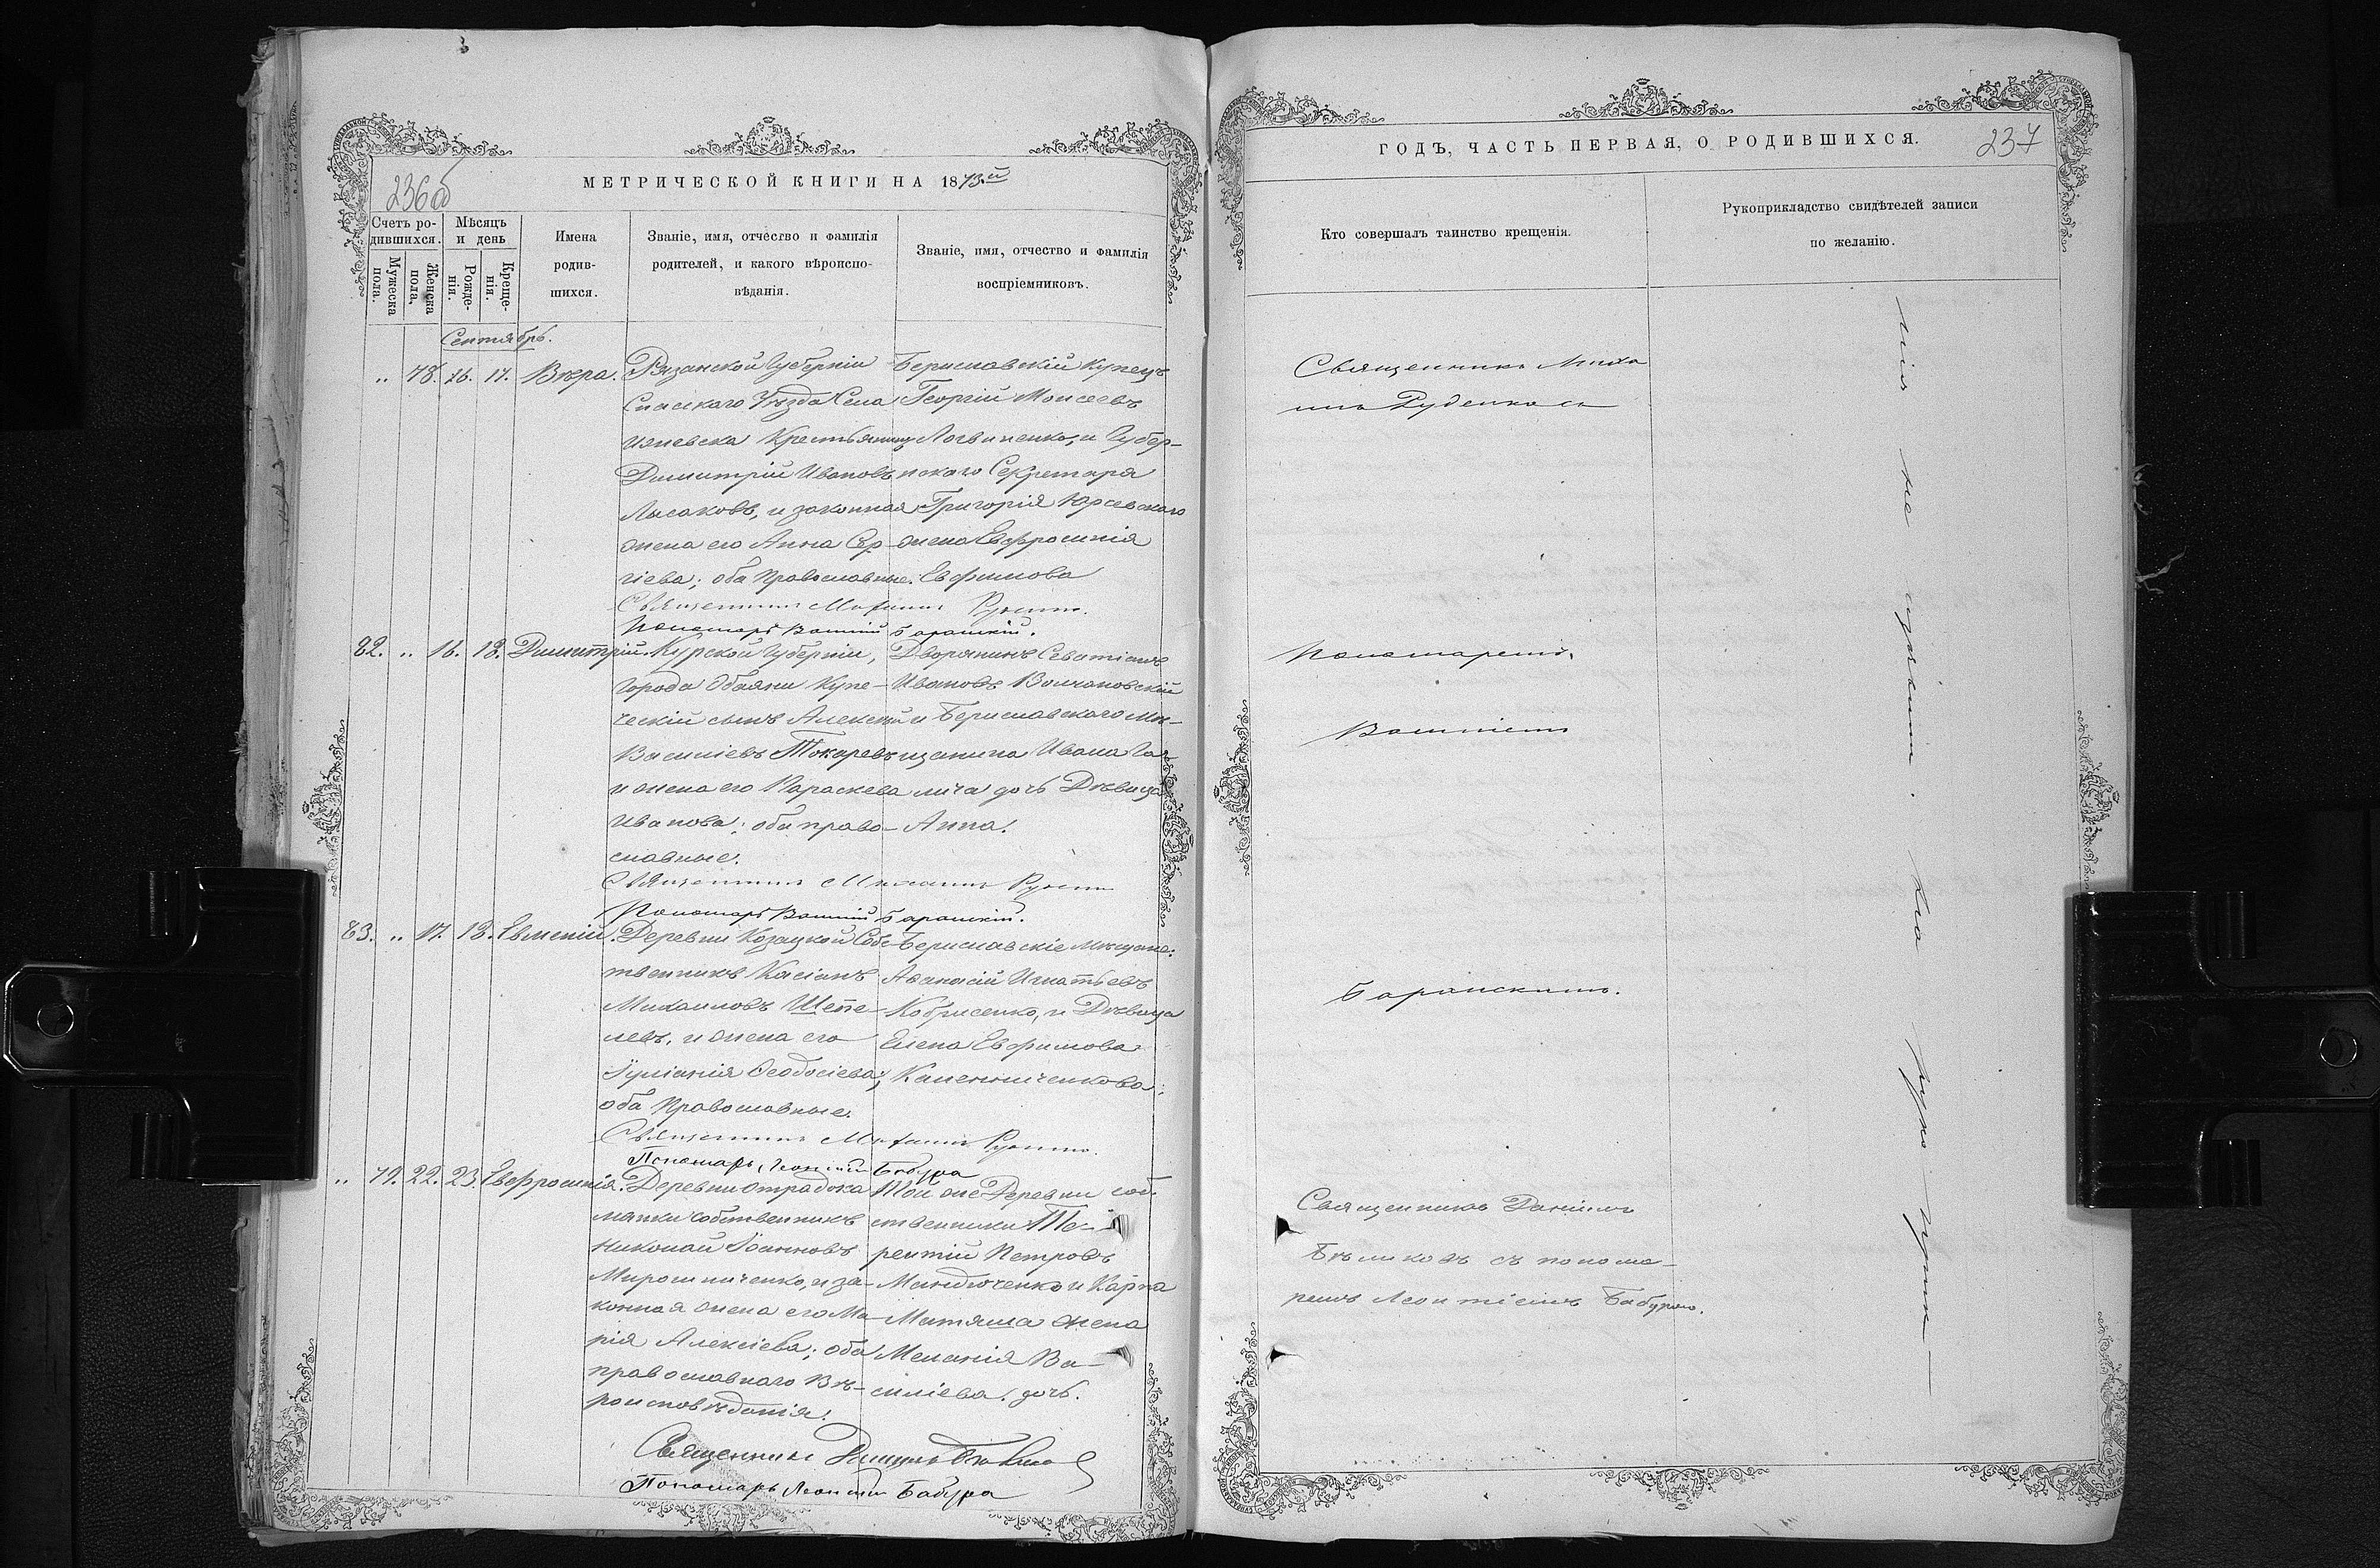 236об
МЕТРИЧЕСКОЙ КНИГИ НА 1873.й
Счетъ ро-
дившихся.
Мужеска
пола.
Женска
пола.
Мѣсяцъ
и день
Рожде-
нія.
Креще-
нія.
Имена
родив-
шихся.
Званіе, имя, отчество и фамилія
родителей, и какого вѣроиспо-
вѣданія.
Званіе, имя, отчество и фамилія
воспріемниковъ.
Сентябрь.
„ 78. 16. 17. Вѣра.
Рязанской Губерніи
Спаскаго Уѣзда Села
Ижевска Крестьянинъ
Димитрій Ивановъ
Лысаковъ, и законная
жена его Анна Сер-
гіева; оба Православные.
Бериславскій Купецъ
Георгій Моисеевъ
Логвиненко, и Губер-
нскаго Секретаря
Григорія Юрсевскаго
жена Евфросинія
Евфимова
Священникъ Михаилъ
Пономарь Василій Баранскій.
82. „ 16. 18. Димитрій.
Курской Губерніи,
города Обаяни Купе-
ческій сынъ Алексѣй
Василіевъ Токаревъ
и жена его Параскева
Иванова; оба право-
славные.
Дворянинъ Севатіанъ
Ивановъ Волчановскій
и Бериславскаго Мѣ-
щанина Ивана Га-
лича дочь Дѣвица
Анна.
Священникъ Михаилъ
Пономарь Василій Баранскій.
83. „ 17. 18. Евменій.
Деревни Козацкой Собс-
твенникъ Касіанъ
Михаиловъ Шепе-
левъ, и жена его
Іуліанія Ѳеодосіева;
оба Православные.
Бериславскіе Мѣщане:
Аѳанасій Игнатьевъ
Кобрисенко, и Дѣвица
Елена Евфимова
Каленниченкова.
Священникъ Михаилъ
Пономарь, Леонтій Бабура
„ 79. 22. 23. Евфросинія.
Деревни Отрадока
менки собственникъ
Николай Іоанновъ
Мирошниченко, и за-
конная жена его Ма-
рія Алексіева; оба
православнаго вѣ-
роисповѣданія.
Той же Деревни соб-
ственники Те-
рентій Петровъ
Миндюченко и Карпа
Митяша жена
Меланія Ва-
силіева. дочь.
Священникъ Даніилъ Бѣликовъ
Пономарь Леонтій Бабура
ГОДЪ, ЧАСТЬ ПЕРВАЯ, О РОДИВШИХСЯ.
237
Кто совершалъ таинство крещенія.
Рукоприкладство свидѣтелей записи
по желанію.
Священникъ Миха
илъ Руденко съ
Пономаремъ
Василіемъ
Баранскимъ.
Священникъ Даніилъ
Бѣликовъ съ понома-
ремъ Леонтіемъ Бабурою.